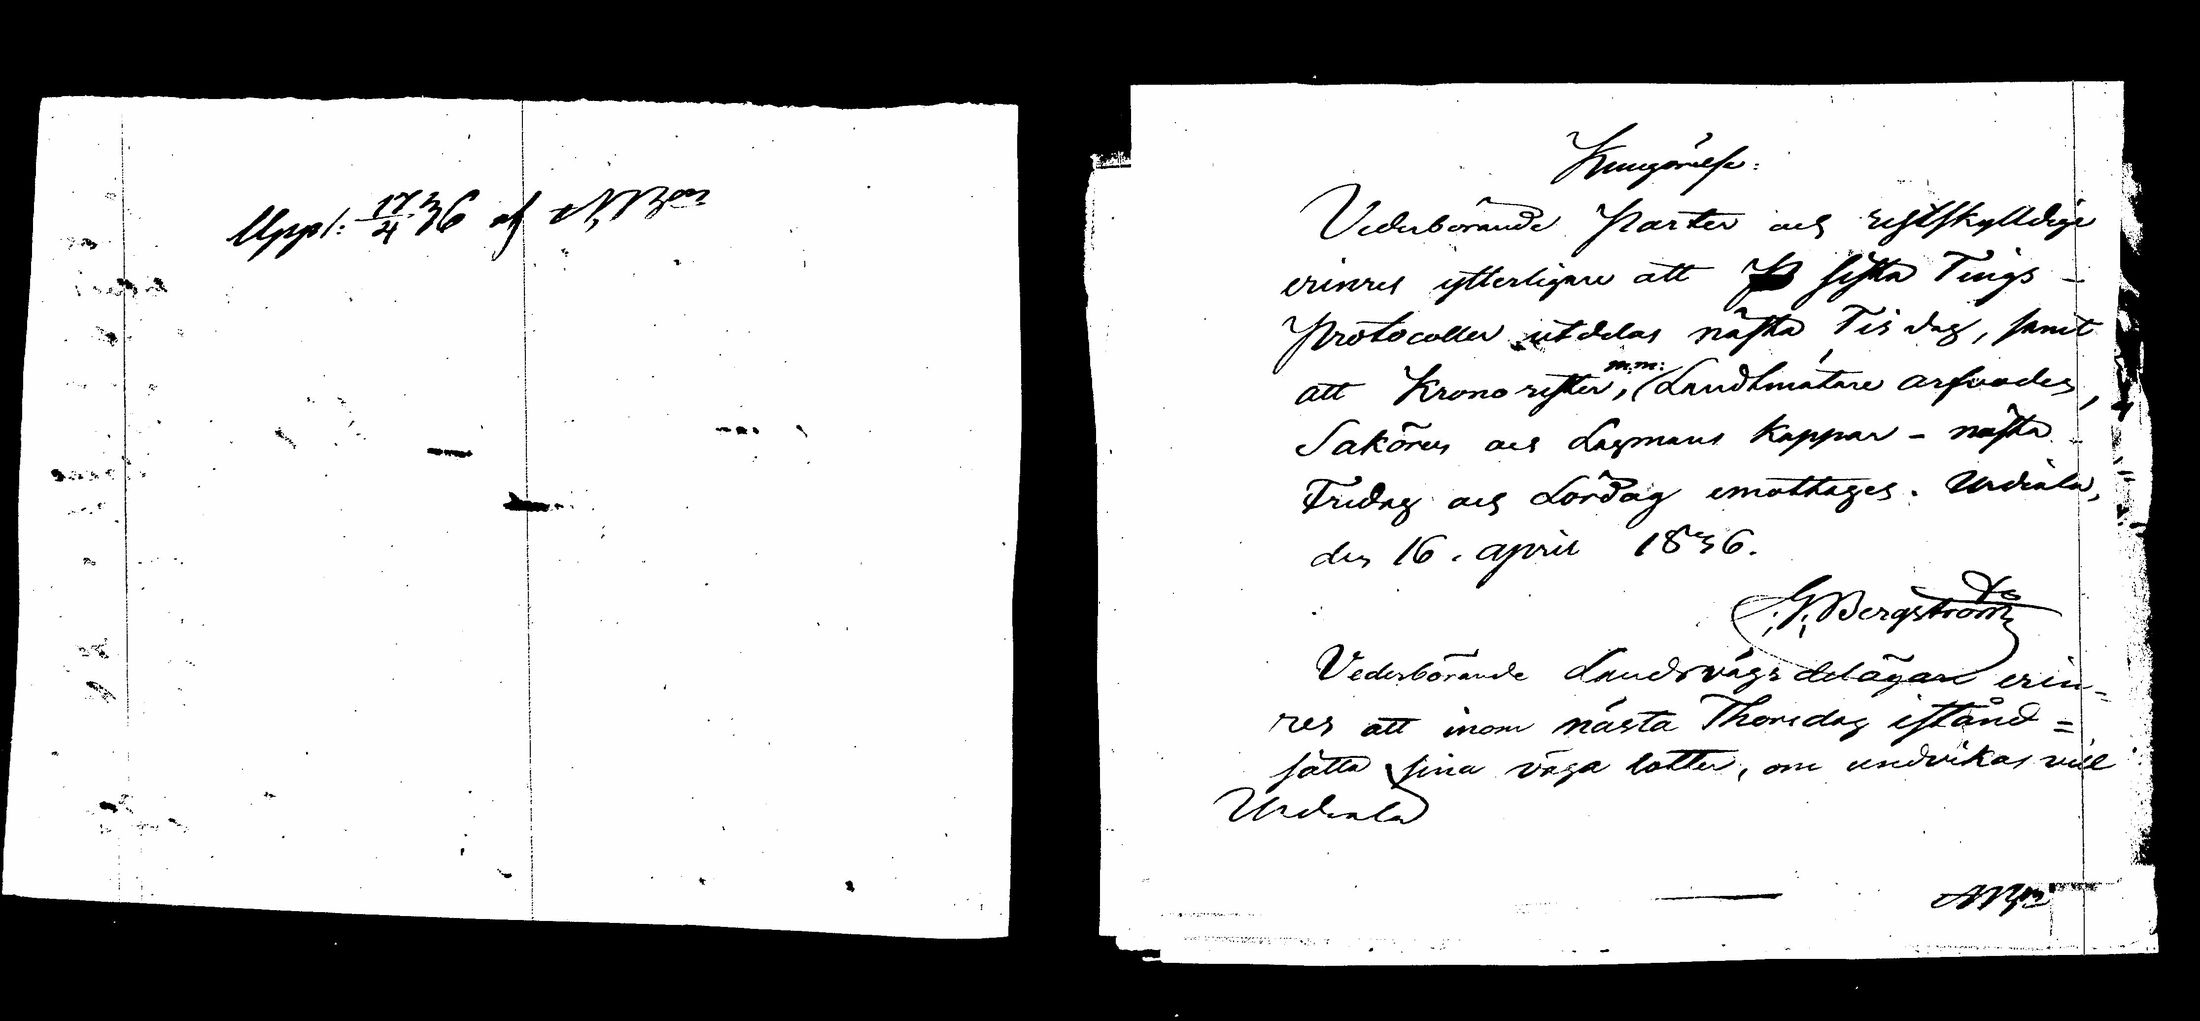 Uppl: 17/4 36 af
Kungörelse:
Vederbörande Parter och restskylldige
erinres ytterligare att sista Tings-
Protocoller utdelas nästa Tisdag, samt
att Kronorester, m.m: Landtmätare arfvodes,
Saköres och Lagmans Kappar - nästa
Fredag och Lördag emottages. Urdiala,
den 16. april 1836.
G: Bergström
Vederbörande Landsvägs delägare erin-
res att inom nästa Thorsdag istånd=
sätta sina väga lotter, om undvikas vill
Urdiala